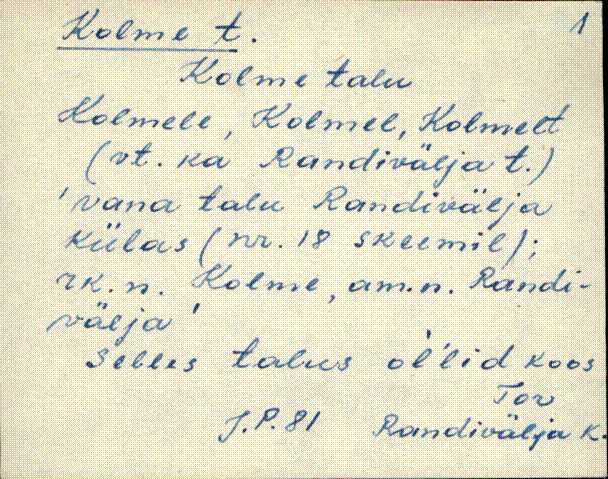 Kolme t. 1
Kolme talu
Kolmele, Kolmel, Kolmelt
(vt. ka Randivälja t.)
'vana talu Randivälja
külas (nr. 18 skeemil);
rk. n. Kolme, am. n. Randi-
välja'
Selles talus ol'lid koos
Tor
J.P. 81 Randivälja k.